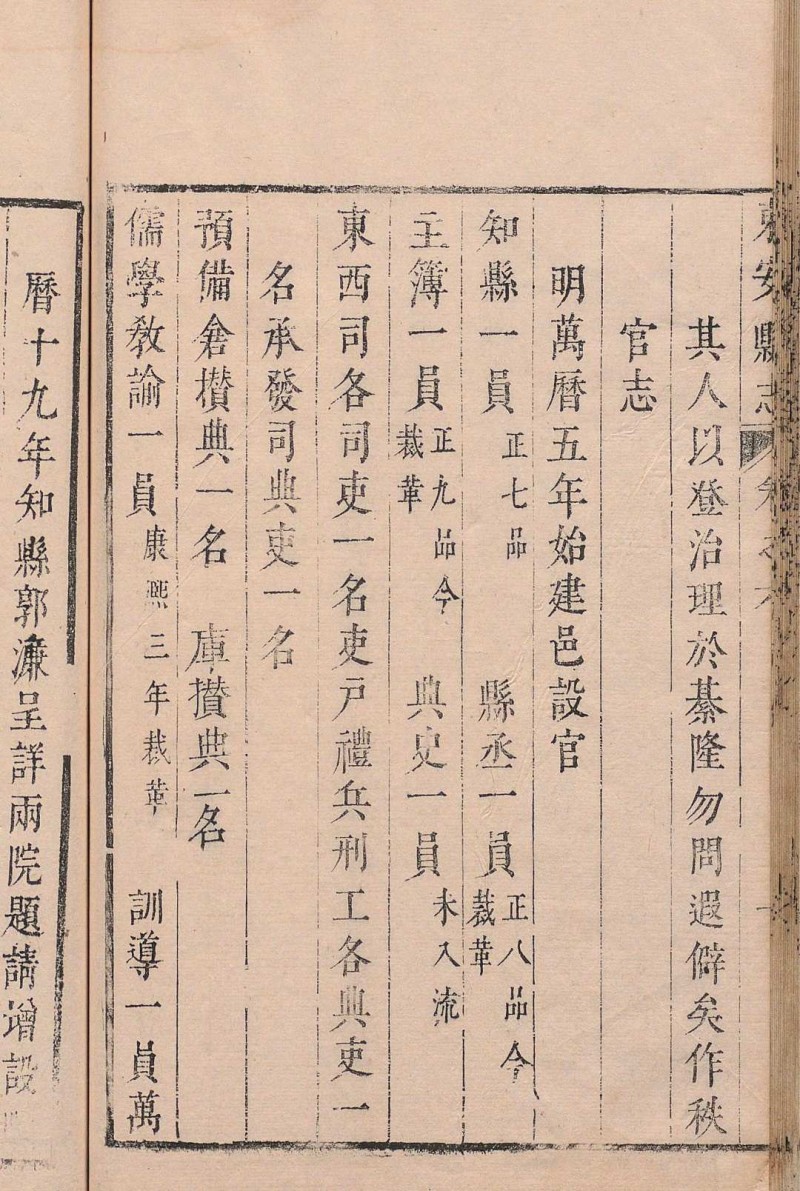 東安縣志 卷之六
其人以登治理於綦隆勿問遐僻矣作秩
官志
明萬曆五年始建邑設官
知縣一員正七品 縣丞一員正八品今裁革
主簿一員正九品今裁革 典史一員未入流
東西司各司吏一名吏戶禮兵刑工各典吏一
名承發司典吏一名
預備倉攅典一名 庫攅典一名
儒學教諭一員康熙三年裁革 訓導一員萬
曆十九年知縣郭濂呈詳兩院題請增設